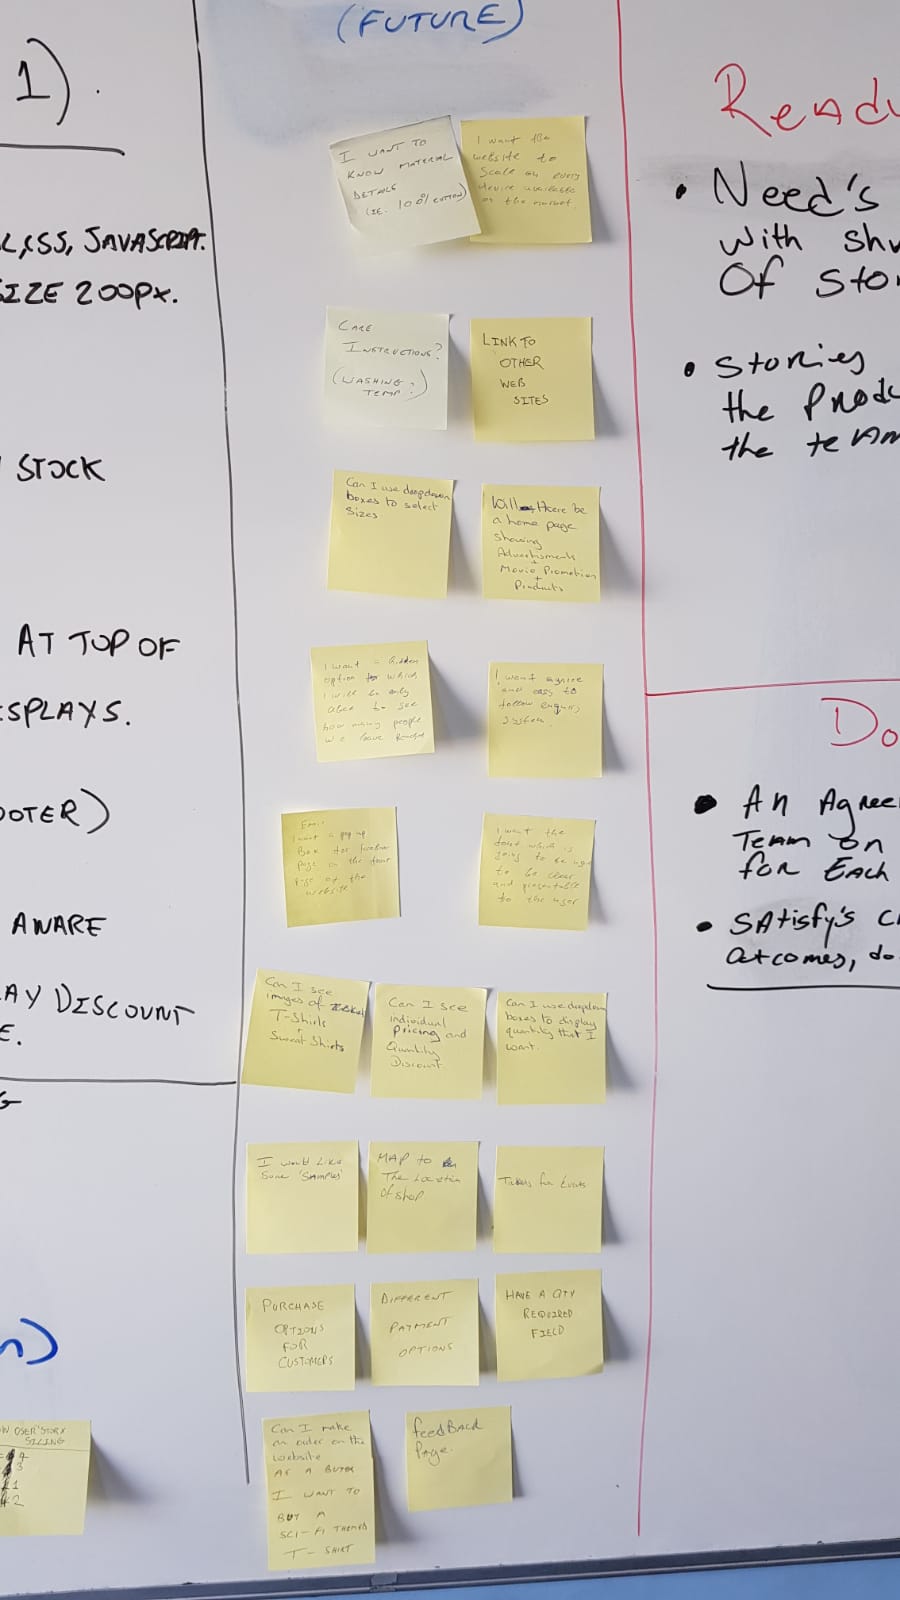 (FUTURE)
1).
CSS, JAVASCRIPT.
SIZE 200PX.
STOCK
AT TOP OF
DISPLAYS.
AWARE
DISCOUNT
I WANT TO
KNOW MATERIAL
DETAILS
(IE. 100% COTTON)
I want the
website to
scale on every
device available
on the market.
CARE
INSTRUCTIONS?
(WASHING?
TEMP)
LINK TO
OTHER
WEB
SITES
Can I use dropdown
boxes to select
Sizes
Will there be
a home page
showing
Advertisments
+
Movie Promotion
+
Products
I want a hidden
option for which
I will be only
able to see
how many people
we have
I want a nice
and easy to
follow enquiry
system.
I want a pop up
Box for
page on the front
page of the
website
I want the
font which is
going to be
to be clear
and presentable
to the user
Can I see
images of
T-Shirts
+
Sweat Shirts
Can I see
individual
pricing and
Quantity
Discount
Can I use dropdown
boxes to display
quantity that I
want.
I would like
Some 'SAMPLES'
MAP to
The Location
Of shop
Tickets for Events
PURCHASE
OPTIONS
FOR
CUSTOMERS
DIFFERENT
PAYMENT
OPTIONS
HAVE A QTY
REQUIRED
FIELD
Can I make
an order on the
website
AS A BUYER
I WANT TO
BUY A
SCI-FI THEMED
T-SHIRT
feedBACK
Page.
USER STORY
4
3
1
2
• Need's
With
Of
• Stories
the
the team
• An
Team on
for Each
• SAtisfy's
outcomes,